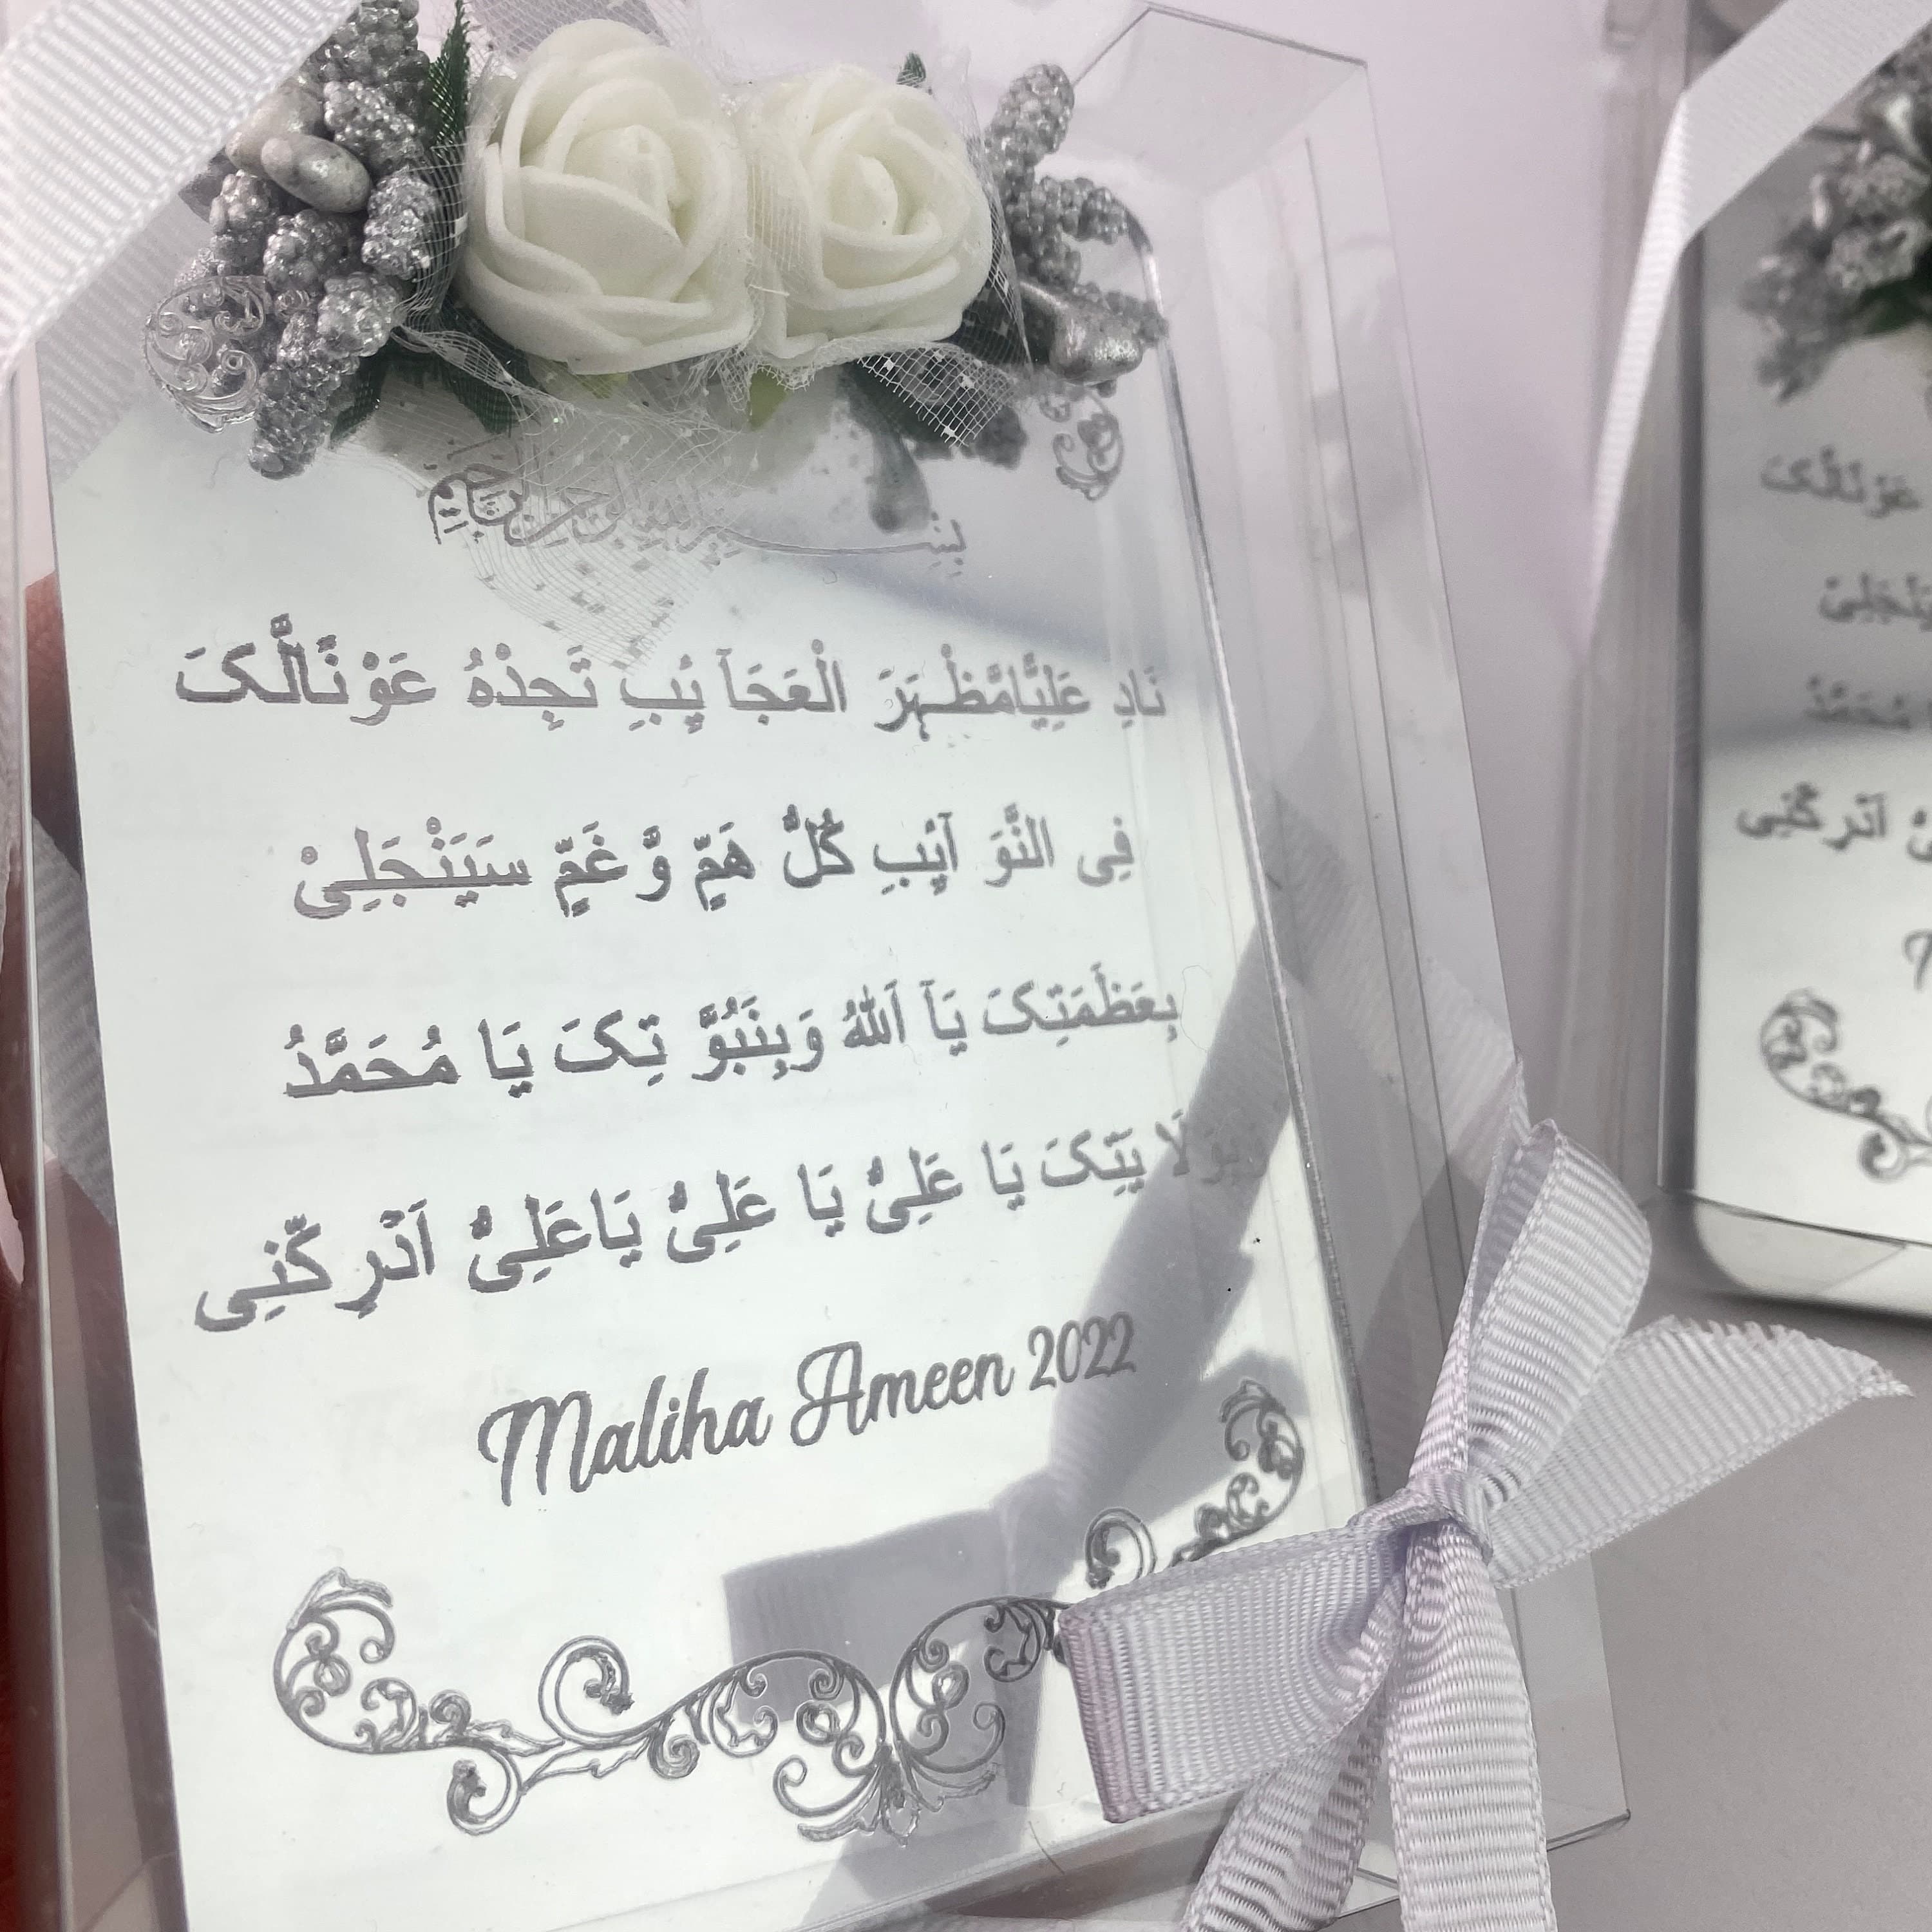 بِسْمِ اللّٰهِ الرَّحْمٰنِ الرَّحِيْمِ
نَادِ عَلِيًّامَّظْهَرَ الْعَجَآ ئِبِ تَجِدْهُ عَوْ نًالَّکَ
فِی النَّوَ آئِبِ کُلُّ هَمٍّ وَّ غَمٍّ سَيَنْجَلِیْ
بِعَظَمَتِکَ يَآ اَللّٰهُ وَبِنَبُوَّ تِکَ يَا مُحَمَّدُ
بِوَلَا يَتِکَ يَا عَلِیُّ يَا عَلِیُّ يَاعَلِیُّ اَدْرِکْنِی
Maliha Ameen 2022
عَوْ نًالَّکَ
اَدْرِکْنِی